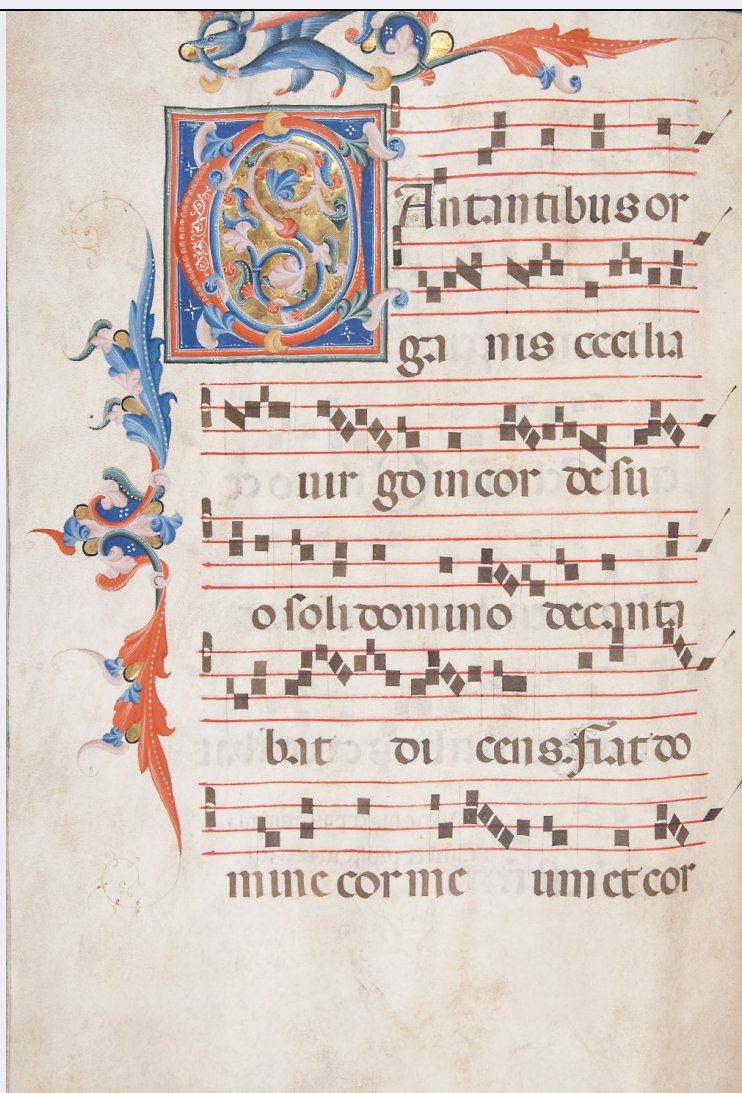 CAntantibus or
ga nis cecilia
uir go in cor de su
o soli domino decanta
bat di cens. fiat do
mine cor me um et cor